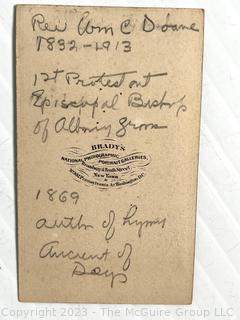 Rev Wm C Doane
1832-1913
1st Protestant
Episcopal Bishop
of Albany from
BRADY'S
NATIONAL PHOTOGRAPHIC
PORTRAIT GALLERIES,
Broadway & Tenth Street,
New York
&
No. 352 Pennsylvania Av. Washington, D.C.
1869
author of hymn
Ancient of
Days
Copyright 2023 - The McGuire Group LLC